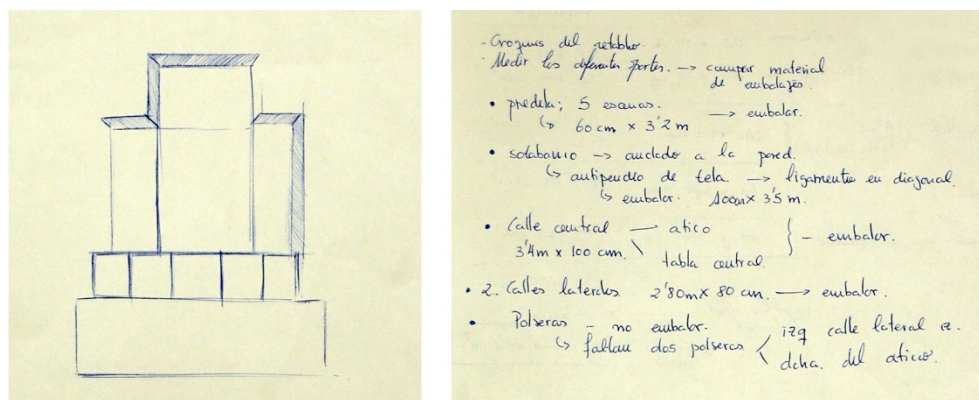 - Croquis del retablo.
- Medir las diferentes partes. → comprar material
de embalajes.
• predela; 5 escenas. → embalar.
↳ 60 cm x 3'2 m
• sotabanco → anclado a la pared.
↳ antipendio de tela → ligamento en diagonal.
↳ embalar. 100cm x 3'5 m.
• Calle central — atico } - embalar.
3'4m x 100 cm. \ tabla central.
• 2. Calles laterales 2'80m x 80 cm. → embalar.
• Polseras - no embalar.
↳ faltan dos polseras < izq calle lateral iz.
dcha. del atico.